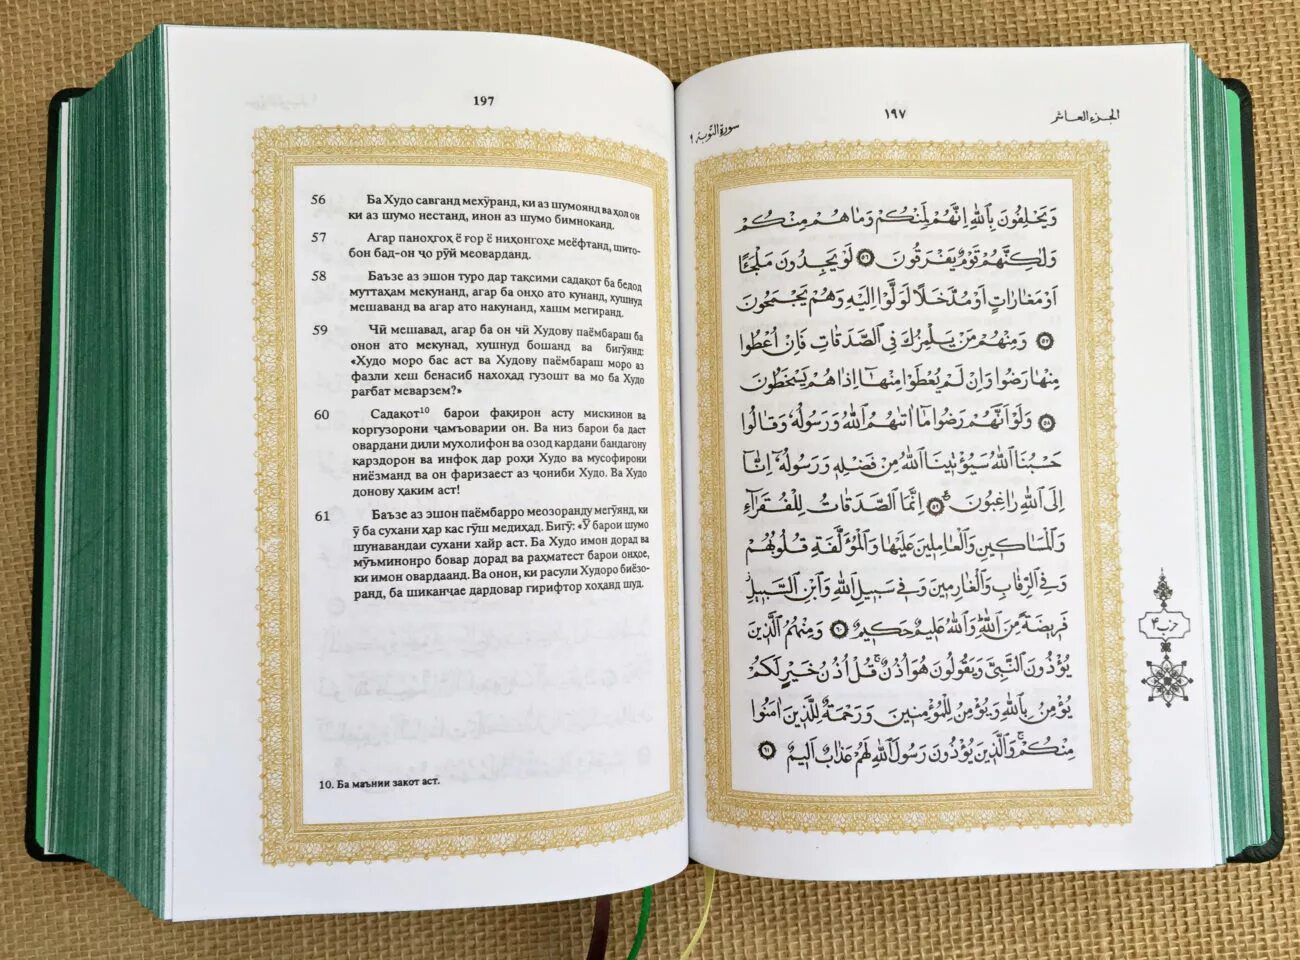 197
56 Ба Худо савганд мехӯранд, ки аз шумоянд ва ҳол он
ки аз шумо нестанд, инон аз шумо бимноканд.
57 Агар паноҳгоҳ ё ғор ё ниҳонгоҳе меёфтанд, шито-
бон бад-он ҷо рӯй меоварданд.
58 Баъзе аз эшон туро дар тақсими садақот ба бедод
муттаҳам мекунанд, агар ба онҳо ато кунанд, хушнуд
мешаванд ва агар ато накунанд, хашм мегиранд.
59 Чӣ мешавад, агар ба он чӣ Худову паёмбараш ба
онон ато мекунад, хушнуд бошанд ва бигӯянд:
«Худо моро бас аст ва Худову паёмбараш моро аз
фазли хеш бенасиб нахоҳад гузошт ва мо ба Худо
рағбат меварзем?»
60 Садақот¹⁰ барои фақирон асту мискинон ва
коргузорони ҷамъоварии он. Ва низ барои ба даст
овардани дили мухолифон ва озод кардани бандагону
қарздорон ва инфоқ дар роҳи Худо ва мусофирони
ниёзманд ва он фаризаест аз ҷониби Худо. Ва Худо
донову ҳаким аст!
61 Баъзе аз эшон паёмбарро меозоранду мегӯянд, ки
ӯ ба сухани ҳар кас гӯш медиҳад. Бигӯ: «Ӯ барои шумо
шунавандаи сухани хайр аст. Ба Худо имон дорад ва
мӯъминонро бовар дорад ва раҳматест барои онҳое,
ки имон овардаанд. Ва онон, ки расули Худоро биёзо-
ранд, ба шиканҷае дардовар гирифтор хоҳанд шуд.
10. Ба маънии закот аст.
سورة التوبة ٩ ١٩٧ الجزء العاشر
وَيَحْلِفُونَ بِاللَّهِ إِنَّهُمْ لَمِنكُمْ وَمَا هُم مِنكُمْ
وَلَٰكِنَّهُمْ قَوْمٌ يَفْرَقُونَ ٥٦ لَوْ يَجِدُونَ مَلْجَئًا
أَوْ مَغَارَاتٍ أَوْ مُدَّخَلًا لَوَلَّوْا إِلَيْهِ وَهُمْ يَجْمَحُونَ
٥٧ وَمِنْهُم مَن يَلْمِزُكَ فِي الصَّدَقَاتِ فَإِنْ أُعْطُوا
مِنْهَا رَضُوا وَإِن لَمْ يُعْطَوْا مِنْهَا إِذَا هُمْ يَسْخَطُونَ
٥٨ وَلَوْ أَنَّهُمْ رَضُوا مَا آتَاهُمُ اللَّهُ وَرَسُولُهُ وَقَالُوا
حَسْبُنَا اللَّهُ سَيُؤْتِينَا اللَّهُ مِن فَضْلِهِ وَرَسُولُهُ إِنَّا
إِلَى اللَّهِ رَاغِبُونَ ٥٩ إِنَّمَا الصَّدَقَاتُ لِلْفُقَرَاءِ
وَالْمَسَاكِينِ وَالْعَامِلِينَ عَلَيْهَا وَالْمُؤَلَّفَةِ قُلُوبُهُمْ
وَفِي الرِّقَابِ وَالْغَارِمِينَ وَفِي سَبِيلِ اللَّهِ وَابْنِ السَّبِيلِ
فَرِيضَةً مِنَ اللَّهِ وَاللَّهُ عَلِيمٌ حَكِيمٌ ٦٠ وَمِنْهُمُ الَّذِينَ
يُؤْذُونَ النَّبِيَّ وَيَقُولُونَ هُوَ أُذُنٌ قُلْ أُذُنُ خَيْرٍ لَكُمْ
يُؤْمِنُ بِاللَّهِ وَيُؤْمِنُ لِلْمُؤْمِنِينَ وَرَحْمَةٌ لِلَّذِينَ آمَنُوا
مِنكُمْ وَالَّذِينَ يُؤْذُونَ رَسُولَ اللَّهِ لَهُمْ عَذَابٌ أَلِيمٌ ٦١